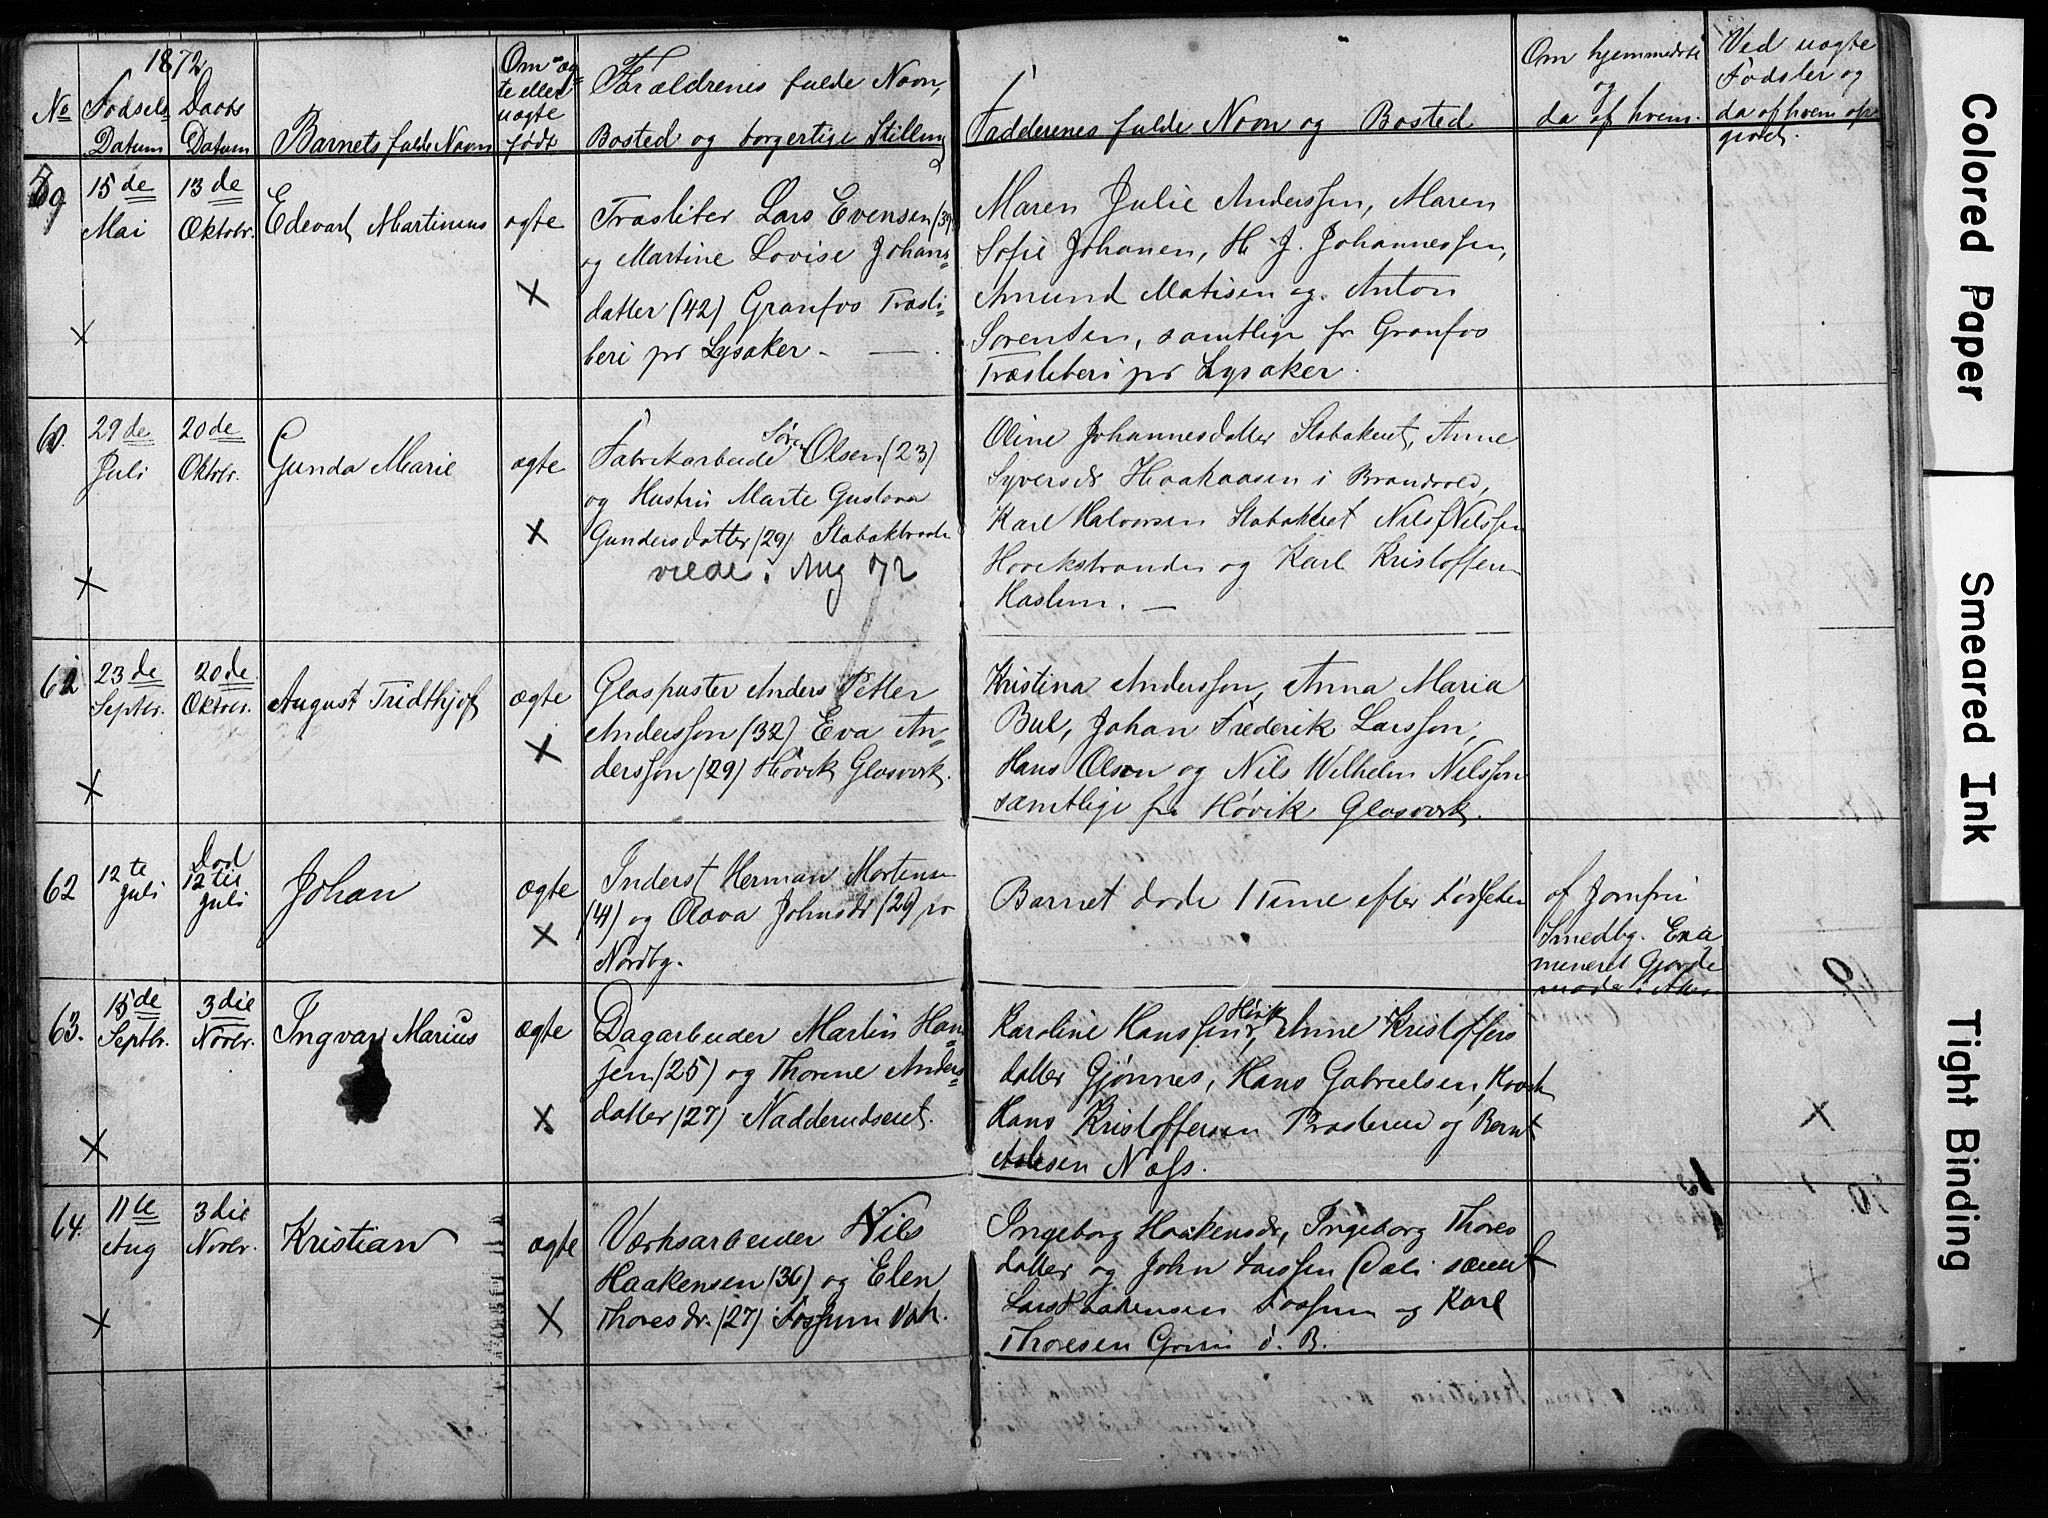 1872
No
Fødsels
Datum
Daabs
Datum
Barnets fulde Navn
Om æg-
te eller
uægte
født
Forældrenes fulde Navn,
Bosted og borgerlige Stilling
Faddernes fulde Navn og Bosted
Om hjemmedøbt
og
da af hvem.
Ved uægte
Fødsler og
da af hvem op-
givet.
59
15de
Mai
13de
Oktobr.
Edevart Martinius
ægte
Træsliber Lars Evensen (39)
og Martine Lovise Johans-
datter (42) Granfos Træsli-
beri pr Lysaker.
Maren Julie Anderssen, Maren
Sofie Johansen, H. J. Johannessen,
Amund Matisen og Anton
Sørensen, samtlige fr Granfos
Træsliberi pr Lysaker.
60.
29de
Juli
20de
Oktobr.
Gunda Marie
ægte
Fabrikarbeide Søren Olsen (23)
og Hustru Marte Gustava
Gundersdatter (29) Stabækbraate
viede i Aug 72
Oline Johannesdatter Stabækeiet, Anne
Syversdr Haakaasen i Brandvold,
Karl Halvorsen Stabækeiet Nils Nilssen
Hovikstranden og Karl Kristoffersen
Haslum.
61
23de
Septbr.
20de
Oktobr.
August Fridthjof
ægte
Glaspuster Anders Petter
Andersson (32) Eva An-
dersson (29) Høvik Glasverk.
Kristina Andersson, Anna Maria
Bul, Johan Frederik Larsson,
Hans Olsen og Nils Wilhelm Nilsson
samtlige fra Høvik Glasverk.
62
12te
Juli
Død
12te
Juli
Johan
ægte
Inderst Herman Mortensen
(41) og Olava Johnsdr (29) pr
Nordbg.
Barnet døde 1 Time efter Fødselen
af Jomfru
Smedbg. Exa
mineret Gjorde
moder i Asker
63.
15de
Septbr.
3die
Novbr.
Ingvar Marius
ægte
Dagarbeider Martin Han-
sen (25) og Thorine Anders-
datter (27) Nadderudseiet.
Karoline Hanssen, Høvik Anne Kristoffers
datter Gjønnes, Hans Gabrielsen, Høvik
Hans Kristoffersen Presterud og Bernt
Aslesen Næss.
64.
11te
Aug
3die
Novbr.
Kristian
ægte
Værksarbeider Nils
Haakensen (36) og Elen
Thoresdr. (27) Fossum Vrk.
Ingeborg Haakensdr, Ingeborg Thores
datter og John Larssen samt
Lars Haakensen Fossum og Karl
Thoresen Grini ø. B.
Colored Paper
Smeared Ink
Tight Binding